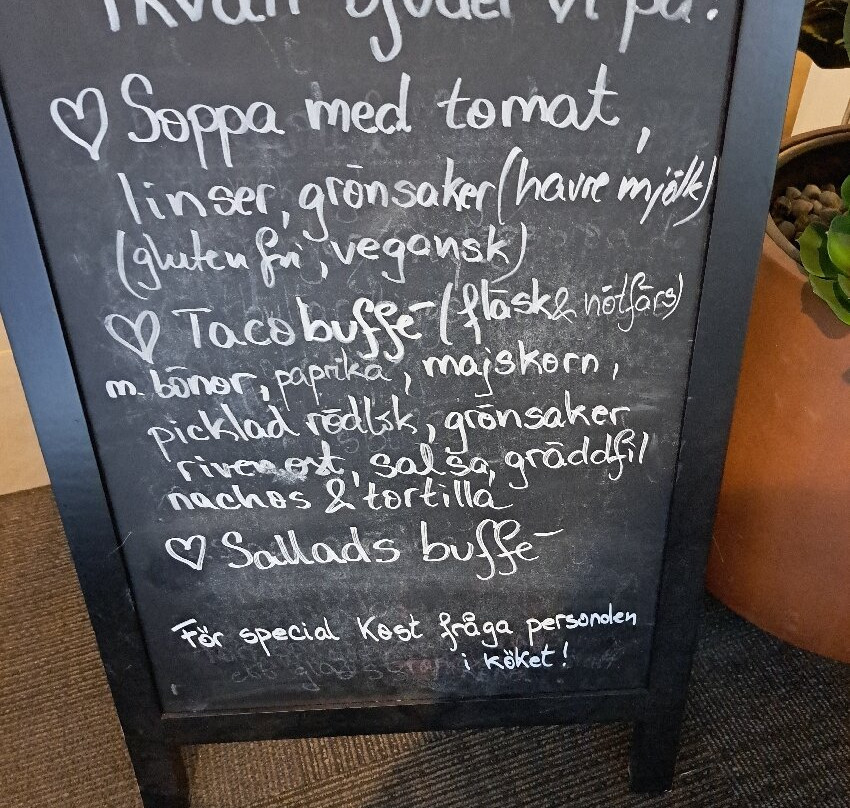 Ikväll bjuder vi på:
♡ Soppa med tomat,
linser, grönsaker (havre mjölk)
(gluten fri, vegansk)
♡ Tacobuffé (fläsk & nötfärs)
m. bönor, paprika, majskorn,
picklad rödlök, grönsaker
riven ost, salsa, gräddfil
nachos & tortilla
♡ Sallads buffé
För special kost fråga personden
i köket!